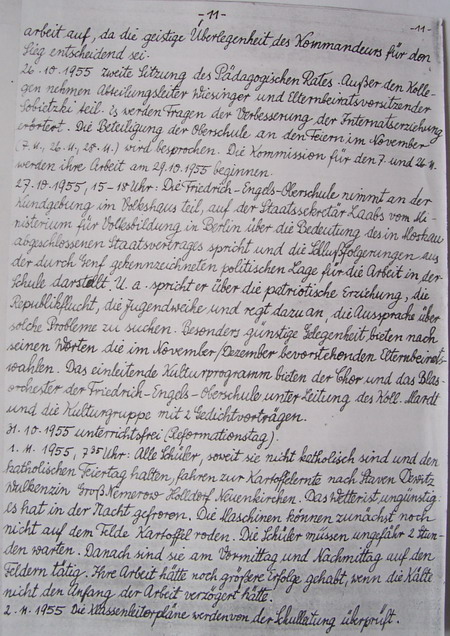 -11-
-11-
arbeit auf, da die geistige Überlegenheit des Kommandeurs für den
Sieg entscheidend sei.
26.10.1955 zweite Sitzung des Pädagogischen Rates. Außer den Kolle-
gen nehmen Abteilungsleiter Wiesinger und Elternbeiratsvorsitzender
Sobietzki teil. Es werden Fragen der Verbesserung der Internatserziehung
erörtert. Die Beteiligung der Oberschule an den Feiern im November
(7.11., 26.11., 28.11.) wird besprochen. Die Kommission für den 7. und 26.11.
werden ihre Arbeit am 29.10.1955 beginnen.
27.10.1955, 15-18 Uhr: Die Friedrich-Engels-Oberschule nimmt an der
Kundgebung im Volkshaus teil, auf der Staatssekretär Laabs vom Mi-
nisterium für Volksbildung in Berlin über die Bedeutung des in Moskau
abgeschlossenen Staatsvertrages spricht und die Schlußfolgerungen aus
der durch Genf gekennzeichneten politischen Lage für die Arbeit in der
Schule darstellt. U. a. spricht er über die patriotische Erziehung, die
Republikflucht, die Jugendweihe und regt dazu an, die Aussprache über
solche Probleme zu suchen. Besonders günstige Gelegenheit bieten nach
seinen Worten die im November/Dezember bevorstehenden Elternbeirats-
wahlen. Das einleitende Kulturprogramm bieten der Chor und das Blas-
orchester der Friedrich-Engels-Oberschule unter Leitung des Koll. Mardt
und die Kulturgruppe mit 2 Gedichtvorträgen.
31.10.1955 unterrichtsfrei (Reformationstag).
1.11.1955, 7³⁵ Uhr: Alle Schüler, soweit sie nicht katholisch sind und den
katholischen Feiertag halten, fahren zur Kartoffelernte nach Staven Dewitz
Wulkenzin Groß Nemerow Holldorf Neuenkirchen. Das Wetter ist ungünstig:
es hat in der Nacht gefroren. Die Maschinen können zunächst noch
nicht auf dem Felde Kartoffel roden. Die Schüler müssen ungefähr 2 Stun-
den warten. Danach sind sie am Vormittag und Nachmittag auf den
Feldern tätig. Ihre Arbeit hätte noch größere Erfolge gehabt, wenn die Kälte
nicht den Anfang der Arbeit verzögert hätte.
2.11.1955 Die Klassenleiterpläne werden von der Schulleitung überprüft.